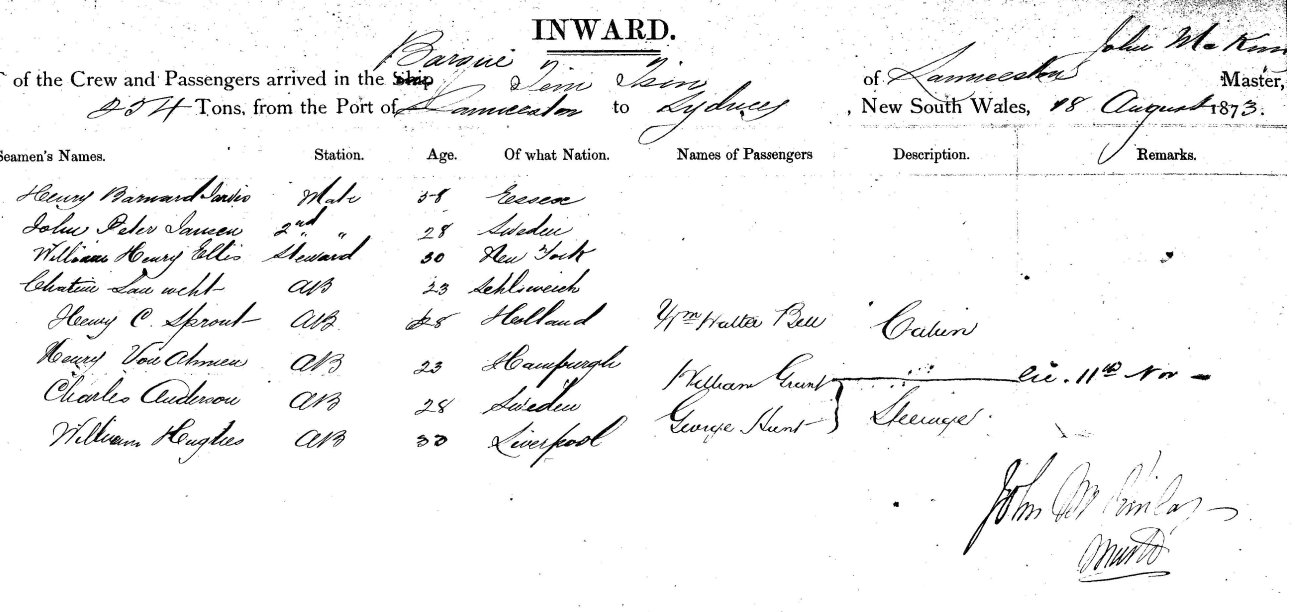 INWARD.
Barque John McKin
of the Crew and Passengers arrived in the Ship Tim of Launceston Master,
254 Tons, from the Port of Launceston to Sydney, New South Wales, 18 August 1873.
Seamen's Names. Station. Age. Of what Nation. Names of Passengers Description. Remarks.
Henry Barnard Mate 58 Essex
John Peter Jansen 2nd " 28 Sweden
William Henry Ellis Steward 30 New York
AB 23 Schlsweich
Henry C. Sprout AB 28 Holland Wm Walter Bell Cabin
Henry Von Ahmen AB 23 Hampurgh William Grunt 11th Nov
Charles Anderson AB 28 Sweden George Hunt Steerage
William Hughes AB 30 Liverpool
John McKinlay
Master